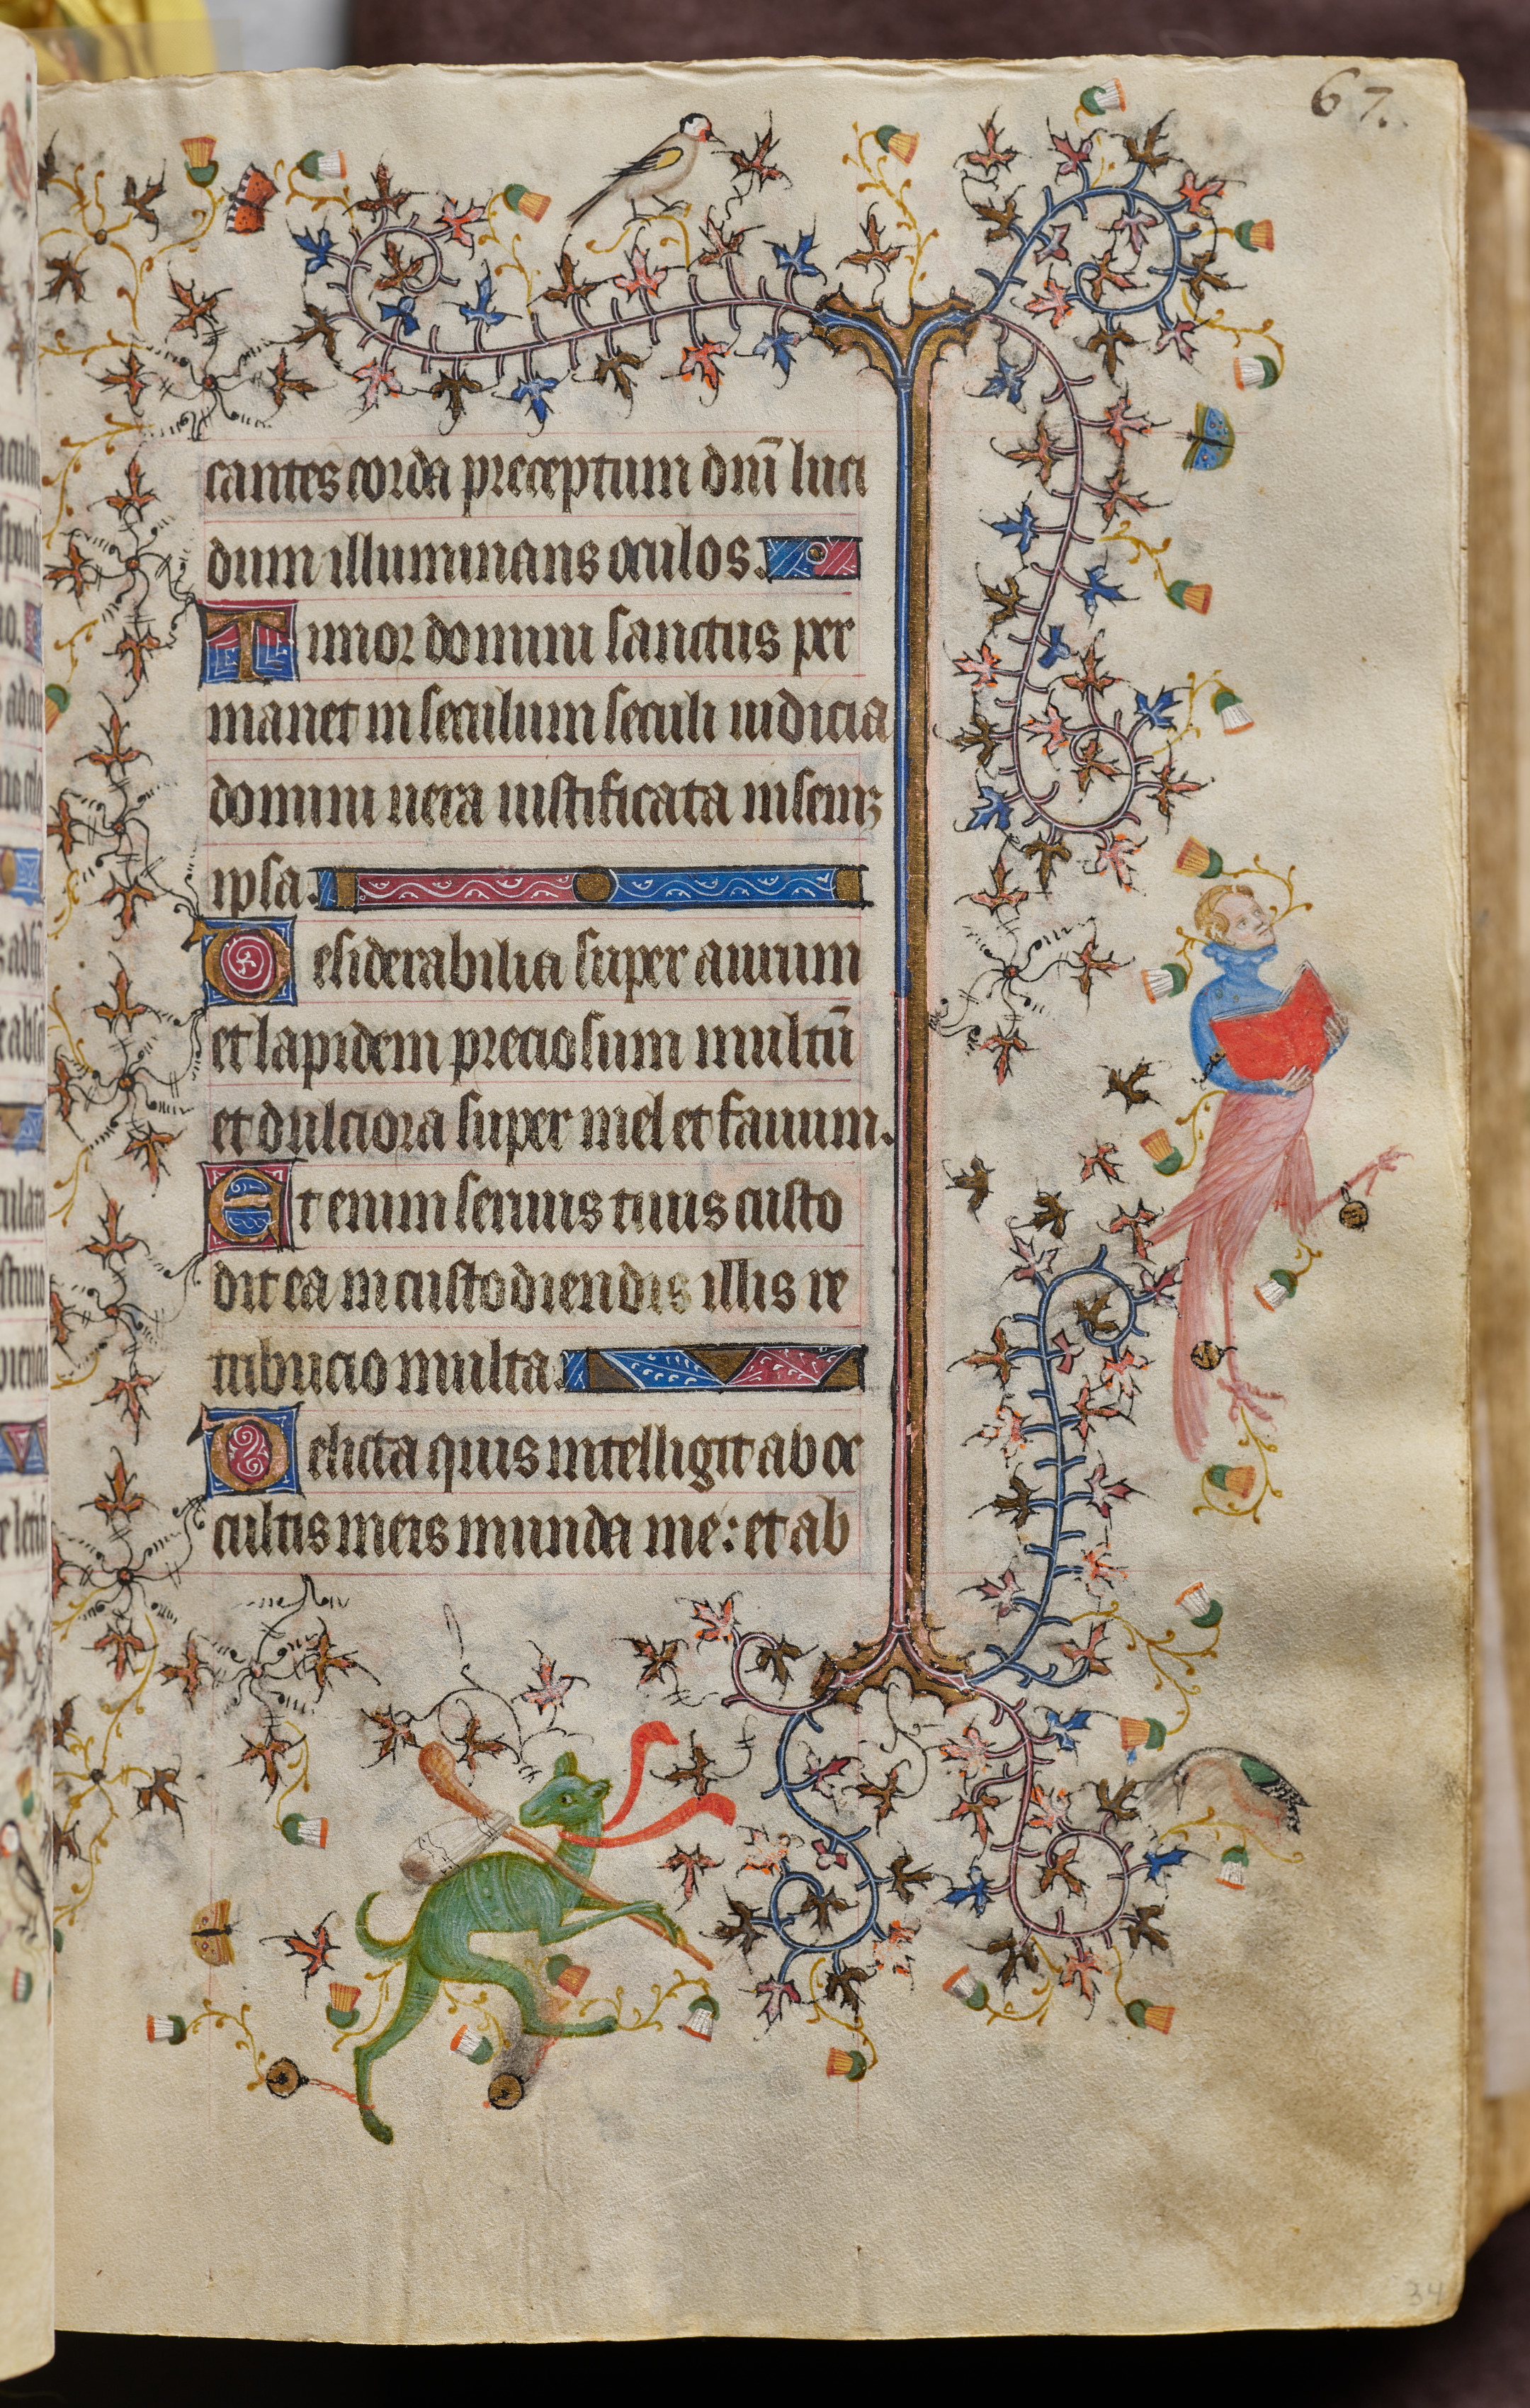 67.
cantes corda preceptum dnī luci
dum illuminans oculos.
Timor domini sanctus per
manet in seculum seculi iudicia
domini uera iustificata in semꝫ
ipsa.
Desiderabilia super aurum
et lapidem preciosum multū
et dulciora super mel et fauum.
Et enim seruus tuus custo
dit ea in custodiendis illis re
tribucio multa.
Delicta quis intelligit ab oc
cultis meis munda me: et ab
34